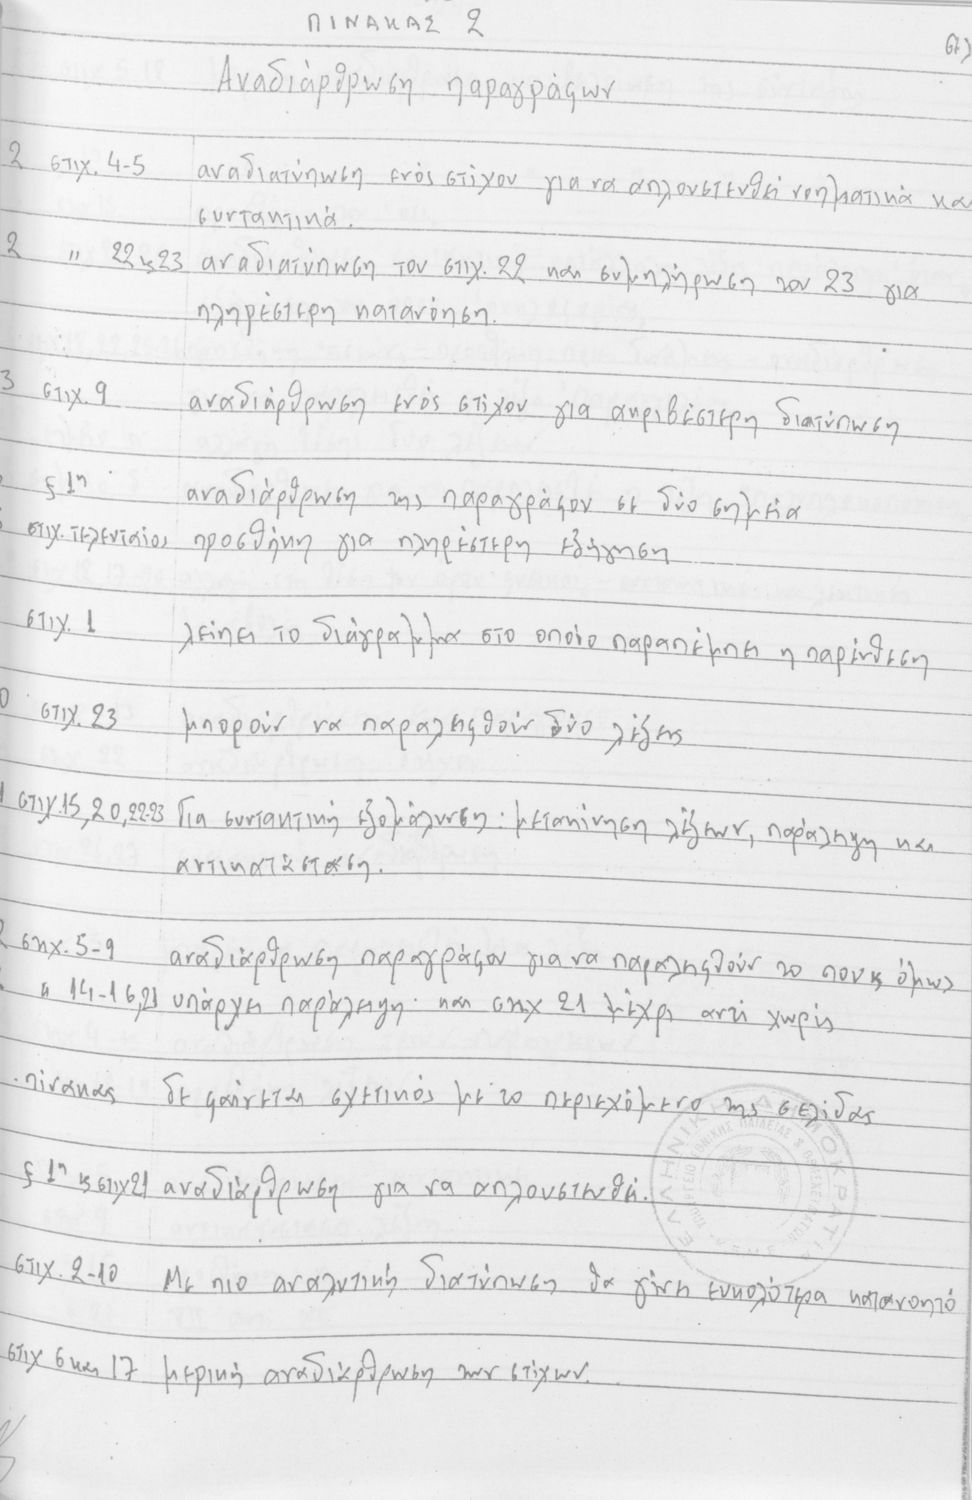 ΠΙΝΑΚΑΣ 2
Αναδιάρθρωση παραγράφων
2 στιχ. 4-5 αναδιατύπωση ενός στίχου για να απλουστευθεί νοηματικά και
συντακτικά.
2 " 22 κ 23 αναδιατύπωση του στιχ. 22 και συμπλήρωση του 23 για
πληρέστερη κατανόηση.
3 στιχ. 9 αναδιάρθρωση ενός στίχου για ακριβέστερη διατύπωση
§ 1η αναδιάρθρωση της παραγράφου σε δύο σημεία
στιχ. τελευταίος προσθήκη για πληρέστερη εξήγηση
στιχ. 1 λείπει το διάγραμμα στο οποίο παραπέμπει η παρένθεση
0 στιχ. 23 μπορούν να παραληφθούν δύο λέξεις
1 στιχ. 15, 20, 22-23 Για συντακτική εξομάλυνση: μετακίνηση λέξεων, παράληψη και
αντικατάσταση.
2 στιχ. 5-9 αναδιάρθρωση παραγράφου για να παραληφθούν το που κ όμως
" 14-16, 21 υπάρχει παράληψη· και στιχ 21 μέχρι αντί χωρίς
πίνακας δε φαίνεται σχετικός με το περιεχόμενο της σελίδας
§ 1η κ στιχ 21 αναδιάρθρωση για να απλουστευθεί.
στιχ. 2-10 Με πιο αναλυτική διατύπωση θα γίνει ευκολότερα κατανοητό
στιχ 6 και 17 μερική αναδιάρθρωση των στίχων.
ΕΛΛΗΝΙΚΗ ΔΗΜΟΚΡΑΤΙΑ
ΥΠΟΥΡΓΕΙΟ ΕΘΝΙΚΗΣ ΠΑΙΔΕΙΑΣ & ΘΡΗΣΚΕΥΜΑΤΩΝ